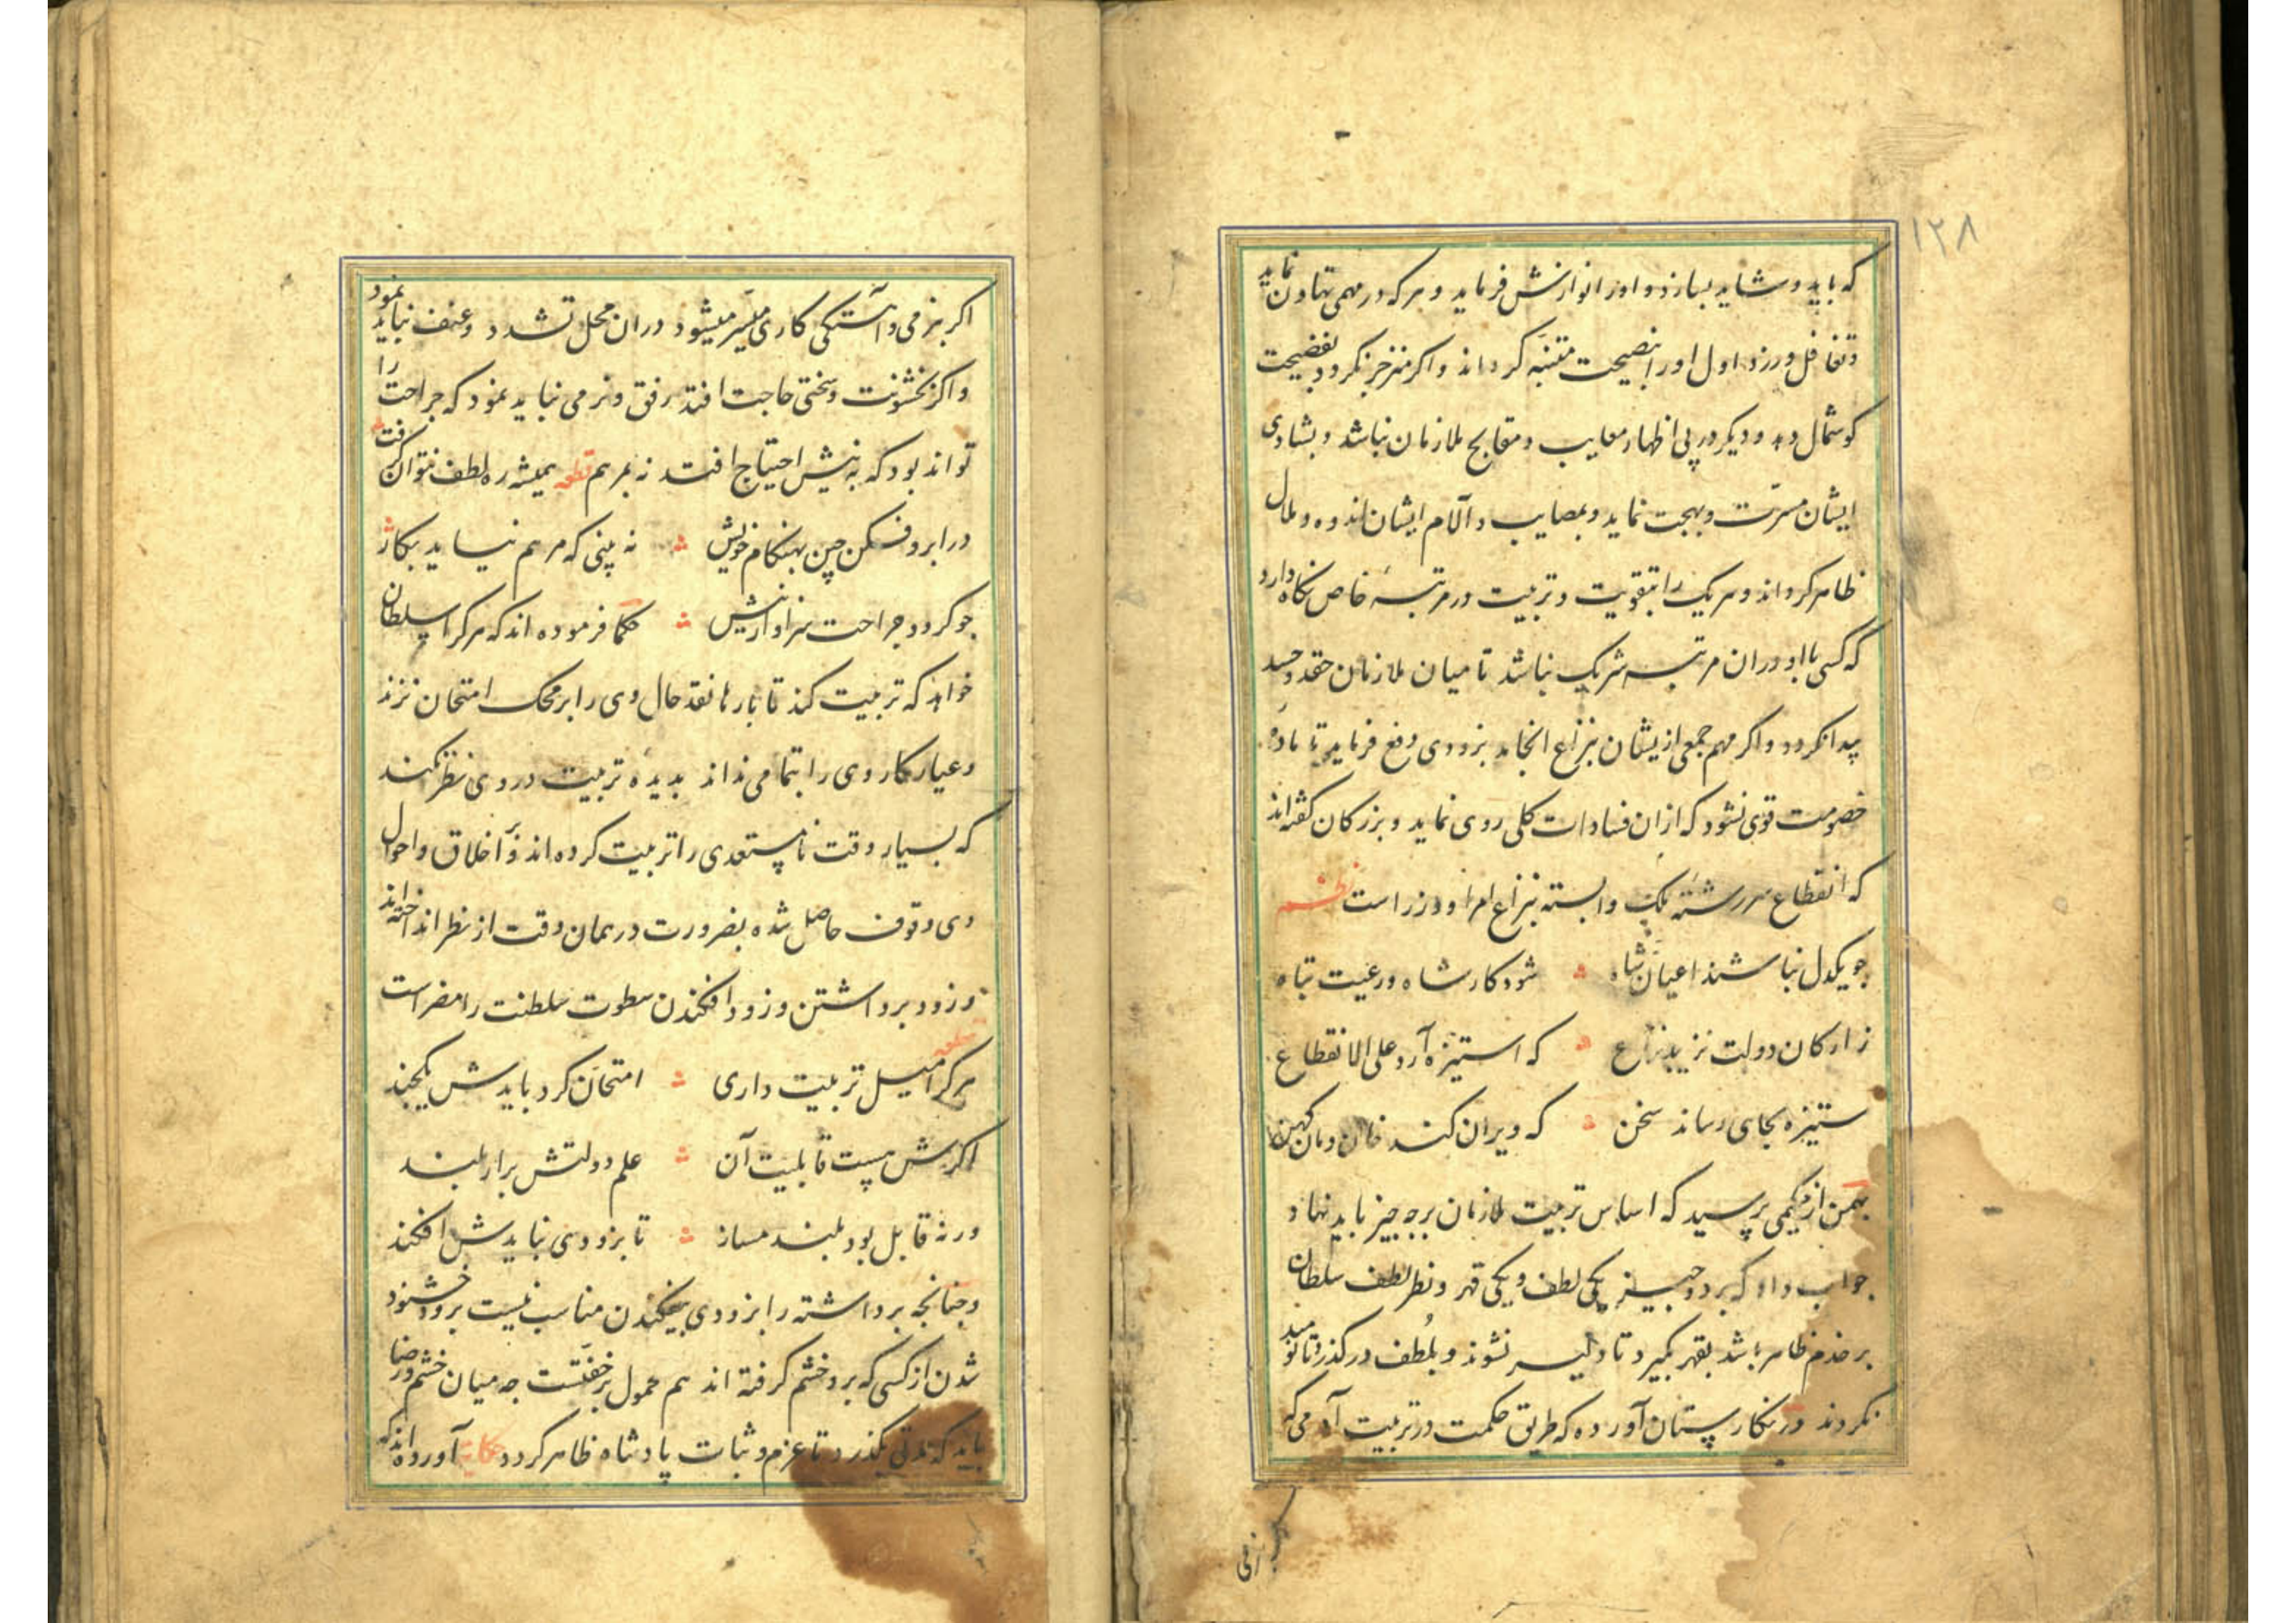 ۱۲۸
که باید و شاید بسازد و او را نوازش فرماید و هرکه در مهمی تهاون نماید
و تغافل ورزد اول او را بنصیحت متنبّه کرداند و اکر منزجر نکردد بفضیحت
کوشمال دهد و دیکر در پی اظهار معایب و مقابح ملازمان نباشد و بشادی
ایشان مسرّت و بهجت نماید و بمصایب و آلام ایشان اندوه و ملال
ظاهر کرداند و هر یک را بتقویت و تربیت در مرتبهٔ خاص نکاه دارد
که کسی با او دران مرتبه شریک نباشد تا میان ملازمان حقد و حسد
پیدا نکردد و اکر مهم جمعی ازیشان بنزاع انجامد بزودی دفع فرماید تا مادهٔ
خصومت قوی نشود که ازان فسادات کلی روی نماید و بزرکان کفته‌اند
که انقطاع سررشتهٔ ملک وابسته بنزاع امرا و وزراست نظم
چو یکدل نباشند اعیان شاه شود کار شاه و رعیت تباه
ز ارکان دولت نزیبد نزاع که استیزه آرد علی الانقطاع
ستیزه بجای رساند سخن که ویران کند خان و مان کهن
بهمن از حکیمی پرسید که اساس تربیت ملازمان برچه چیز باید نهاد
جواب داد که بر دو چیز یکی لطف و یکی قهر و نظر لطف سلطان
بر خدم ظاهر باشد بقهر بکیرد تا دلیر نشوند و بلُطف در کذرد تا نومید
نکردند در نکارستان آورده که طریق حکمت در تربیت آدمی که
اکر بنرمی
اکر بنرمی و آهستکی کاری میسّر میشود دران محل تشدد و عنف نباید نمود
و اکر بخشونت و سختی حاجت افتد رفق و نرمی نباید نمود که جراحت را
تواند بود که به نیش احتیاج افتد نه بمرهم قطعه همیشه ره لطف نتوان کرفت
در ابرو فکن چین بهنکام خویش نه بینی که مرهم نیاید بکار
چو کردد جراحت سزاوار نیش حکما فرموده اند که هرکرا سلطان
خواهد که تربیت کند تا بارها نقد حال وی را بر محک امتحان نزند
و عیار کار وی را بتمامی نداند بدیدهٔ تربیت در وی نظر نکند
که بسیار وقت نامستعدی را تربیت کرده‌اند و بر اخلاق و احوال
وی وقوف حاصل شده بضرورت در همان وقت از نظر انداخته‌اند
و زود برداشتن و زود افکندن سطوت سلطنت را مضر است
قطعه
هرکرا میل تربیت داری امتحان کرد بایدش یکچند
اکرش هست قابلیت آن علم دولتش برار بلند
ورنه قابل بود بلند مساز تا بزودی نبایدش افکند
و چنانچه برداشته را بزودی بیفکندن مناسب نیست برود خشنود
شدن از کسی که برو خشم کرفته اند هم محمول بر خفّتست چه میان خشم و رضا
باید که مدتی بکذرد تا عزم و ثبات پادشاه ظاهر کردد حکایت آورده‌اند که